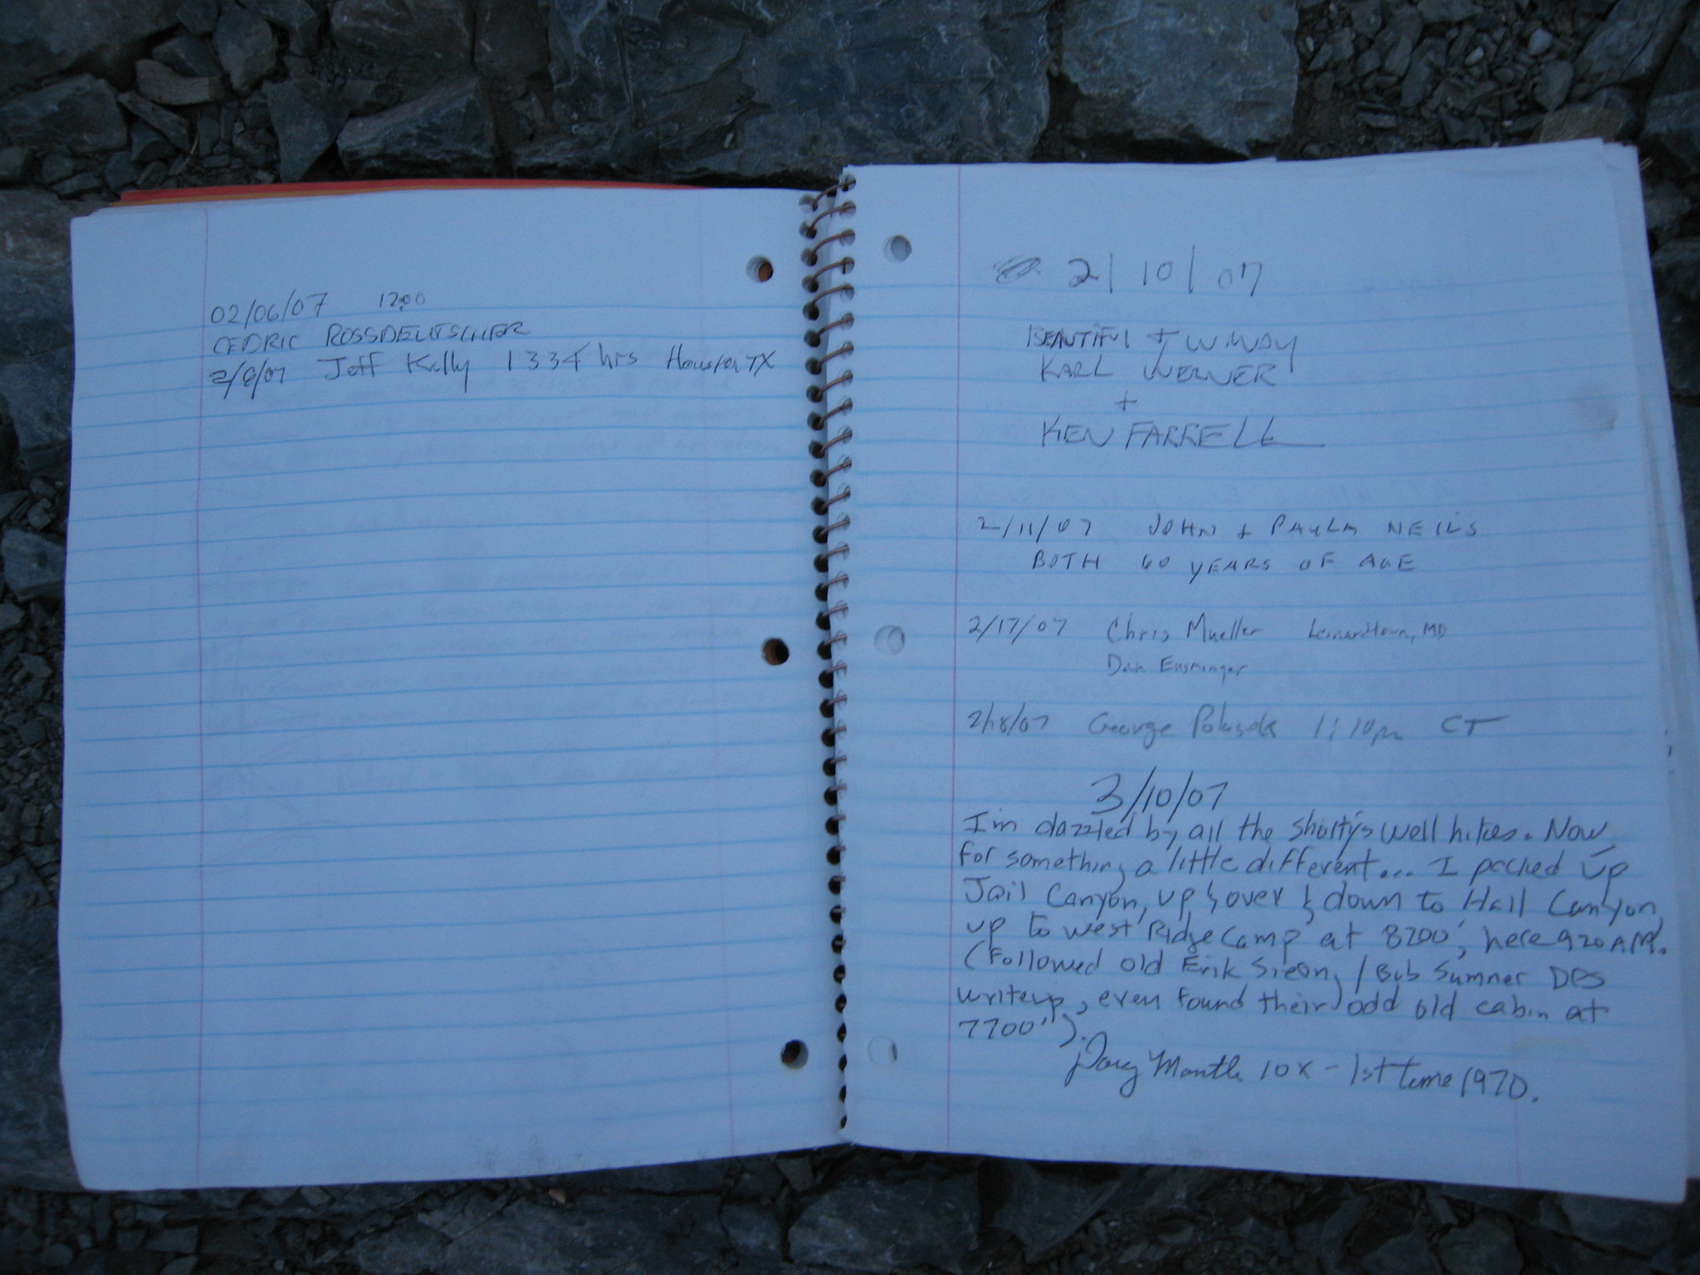 02/06/07 1200
CEDRIC ROSSDEUTSCHER
2/8/07 Jeff Kelly 1334 hrs Houston TX
2/10/07
BEAUTIFUL + WINDY
KARL WERNER
+
KEN FARRELL
2/11/07 JOHN + PAULA NEILS
BOTH 60 YEARS OF AGE
2/17/07 Chris Mueller Leonardtown, MD
Dan Ensminger
2/18/07 George 1:10pm CT
3/10/07
I'm dazzled by all the Shorty's Well hikes. Now
for something a little different... I packed up
Jail Canyon, up & over & down to Hall Canyon,
up to West Ridge Camp at 8200', here 920 AM.
(Followed old Erik Siering / Bob Sumner DPS
writeup, even found their odd old cabin at
7700').
Doug Mantle 10X - 1st time 1970.